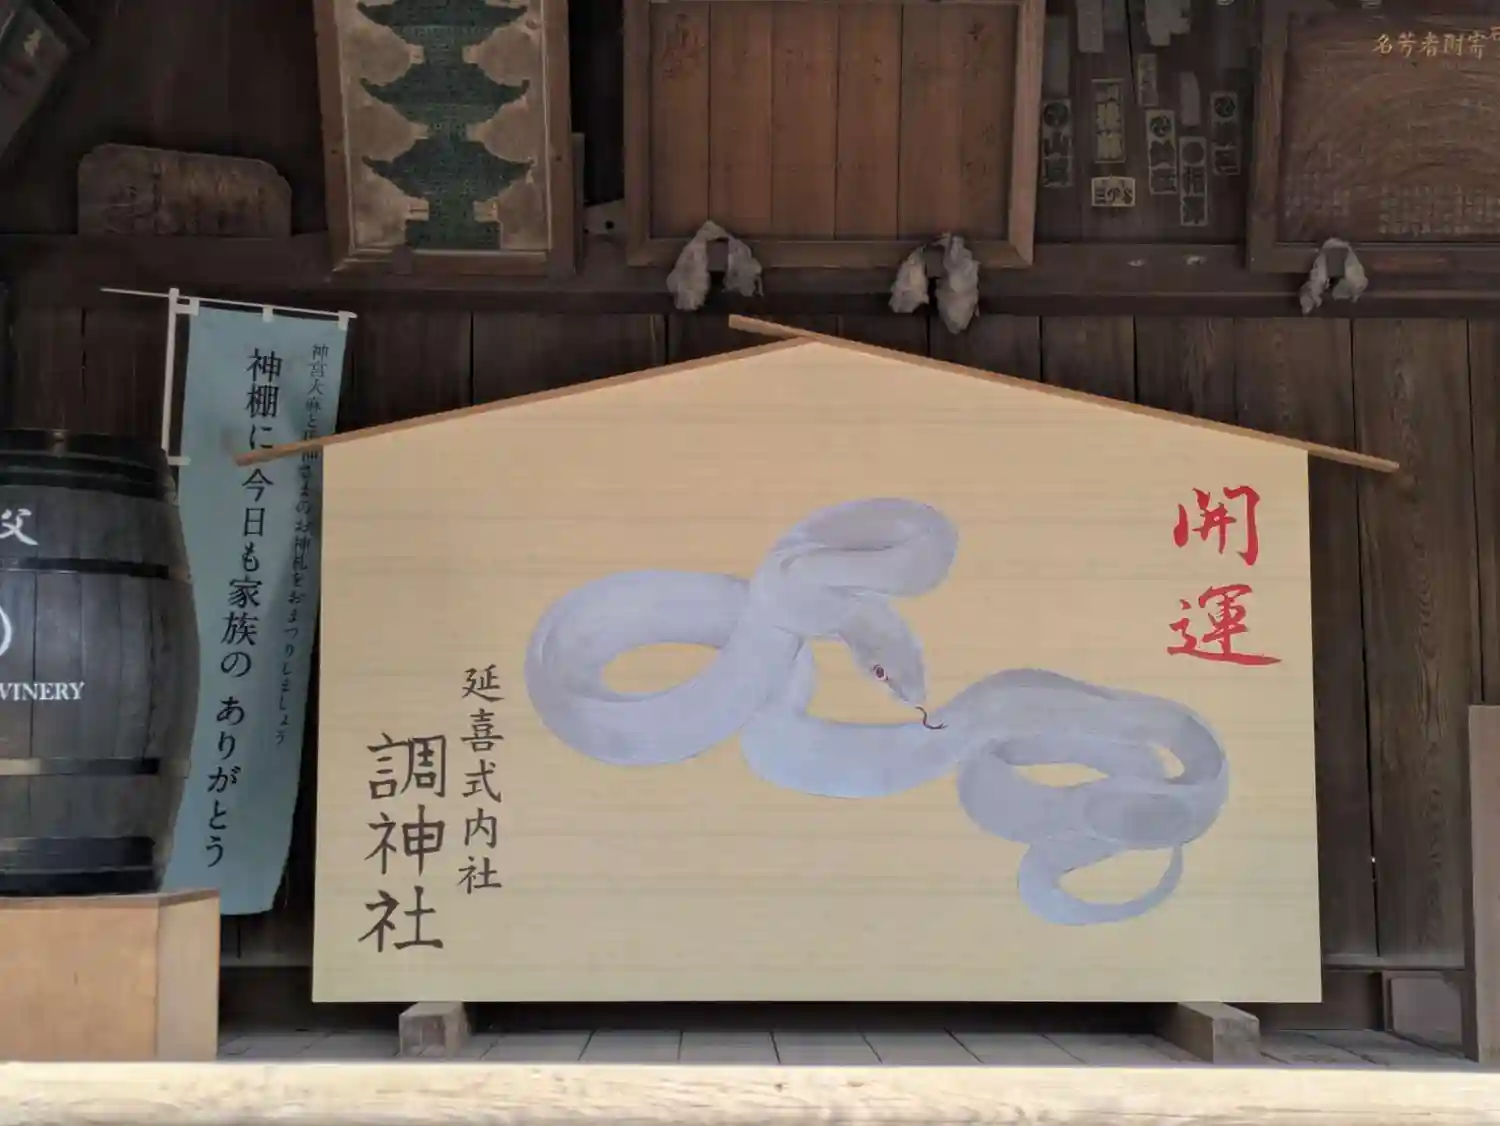 開運
延喜式内社
調神社
神棚に今日も家族の ありがとう
神宮大麻と氏神さまのお神札をおまつりしましょう
父
WINERY
名芳者附寄